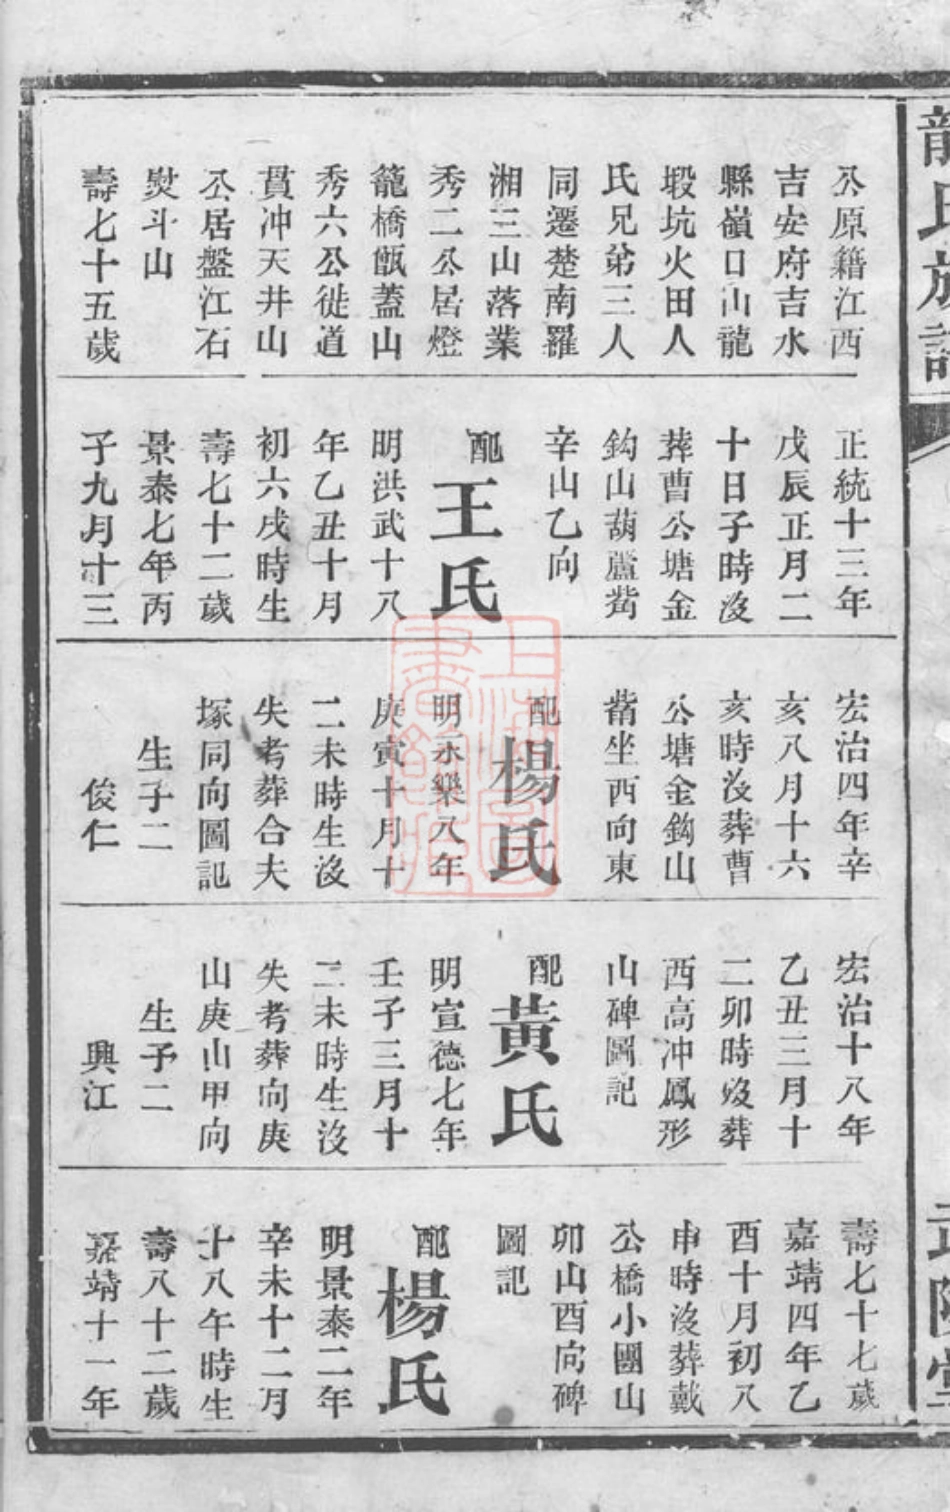 龍氏族譜
公原籍江西
吉安府吉水
縣嶺口山龍
塅坑火田人
氏兄弟三人
同遷楚南羅
湘三山落業
秀二公居燈
籠橋甑蓋山
秀六公徙道
貫冲天井山
公居盤江石
熨斗山
壽七十五歲
正統十三年
戊辰正月二
十日子時沒
葬曹公塘金
鈎山葫蘆嘴
辛山乙向
配王氏
明洪武十八
年乙丑十月
初六戌時生
壽七十二歲
景泰七年丙
子九月十三
宏治四年辛
亥八月十六
亥時沒葬曹
公塘金鈎山
嘴坐西向東
配楊氏
明永樂八年
庚寅十月十
二未時生沒
失考葬合夫
塚同向圖記
生子二
俊仁
宏治十八年
乙丑三月十
二卯時歿葬
西高冲鳳形
山碑圖記
配黃氏
明宣德七年
壬子三月十
二未時生沒
失考葬向庚
山庚山甲向
生子二
興江
壽七十七歲
嘉靖四年乙
酉十月初八
申時沒葬戴
公橋小團山
卯山酉向碑
圖記
配楊氏
明景泰二年
辛未十二月
十八午時生
壽八十二歲
嘉靖十一年
武陵堂